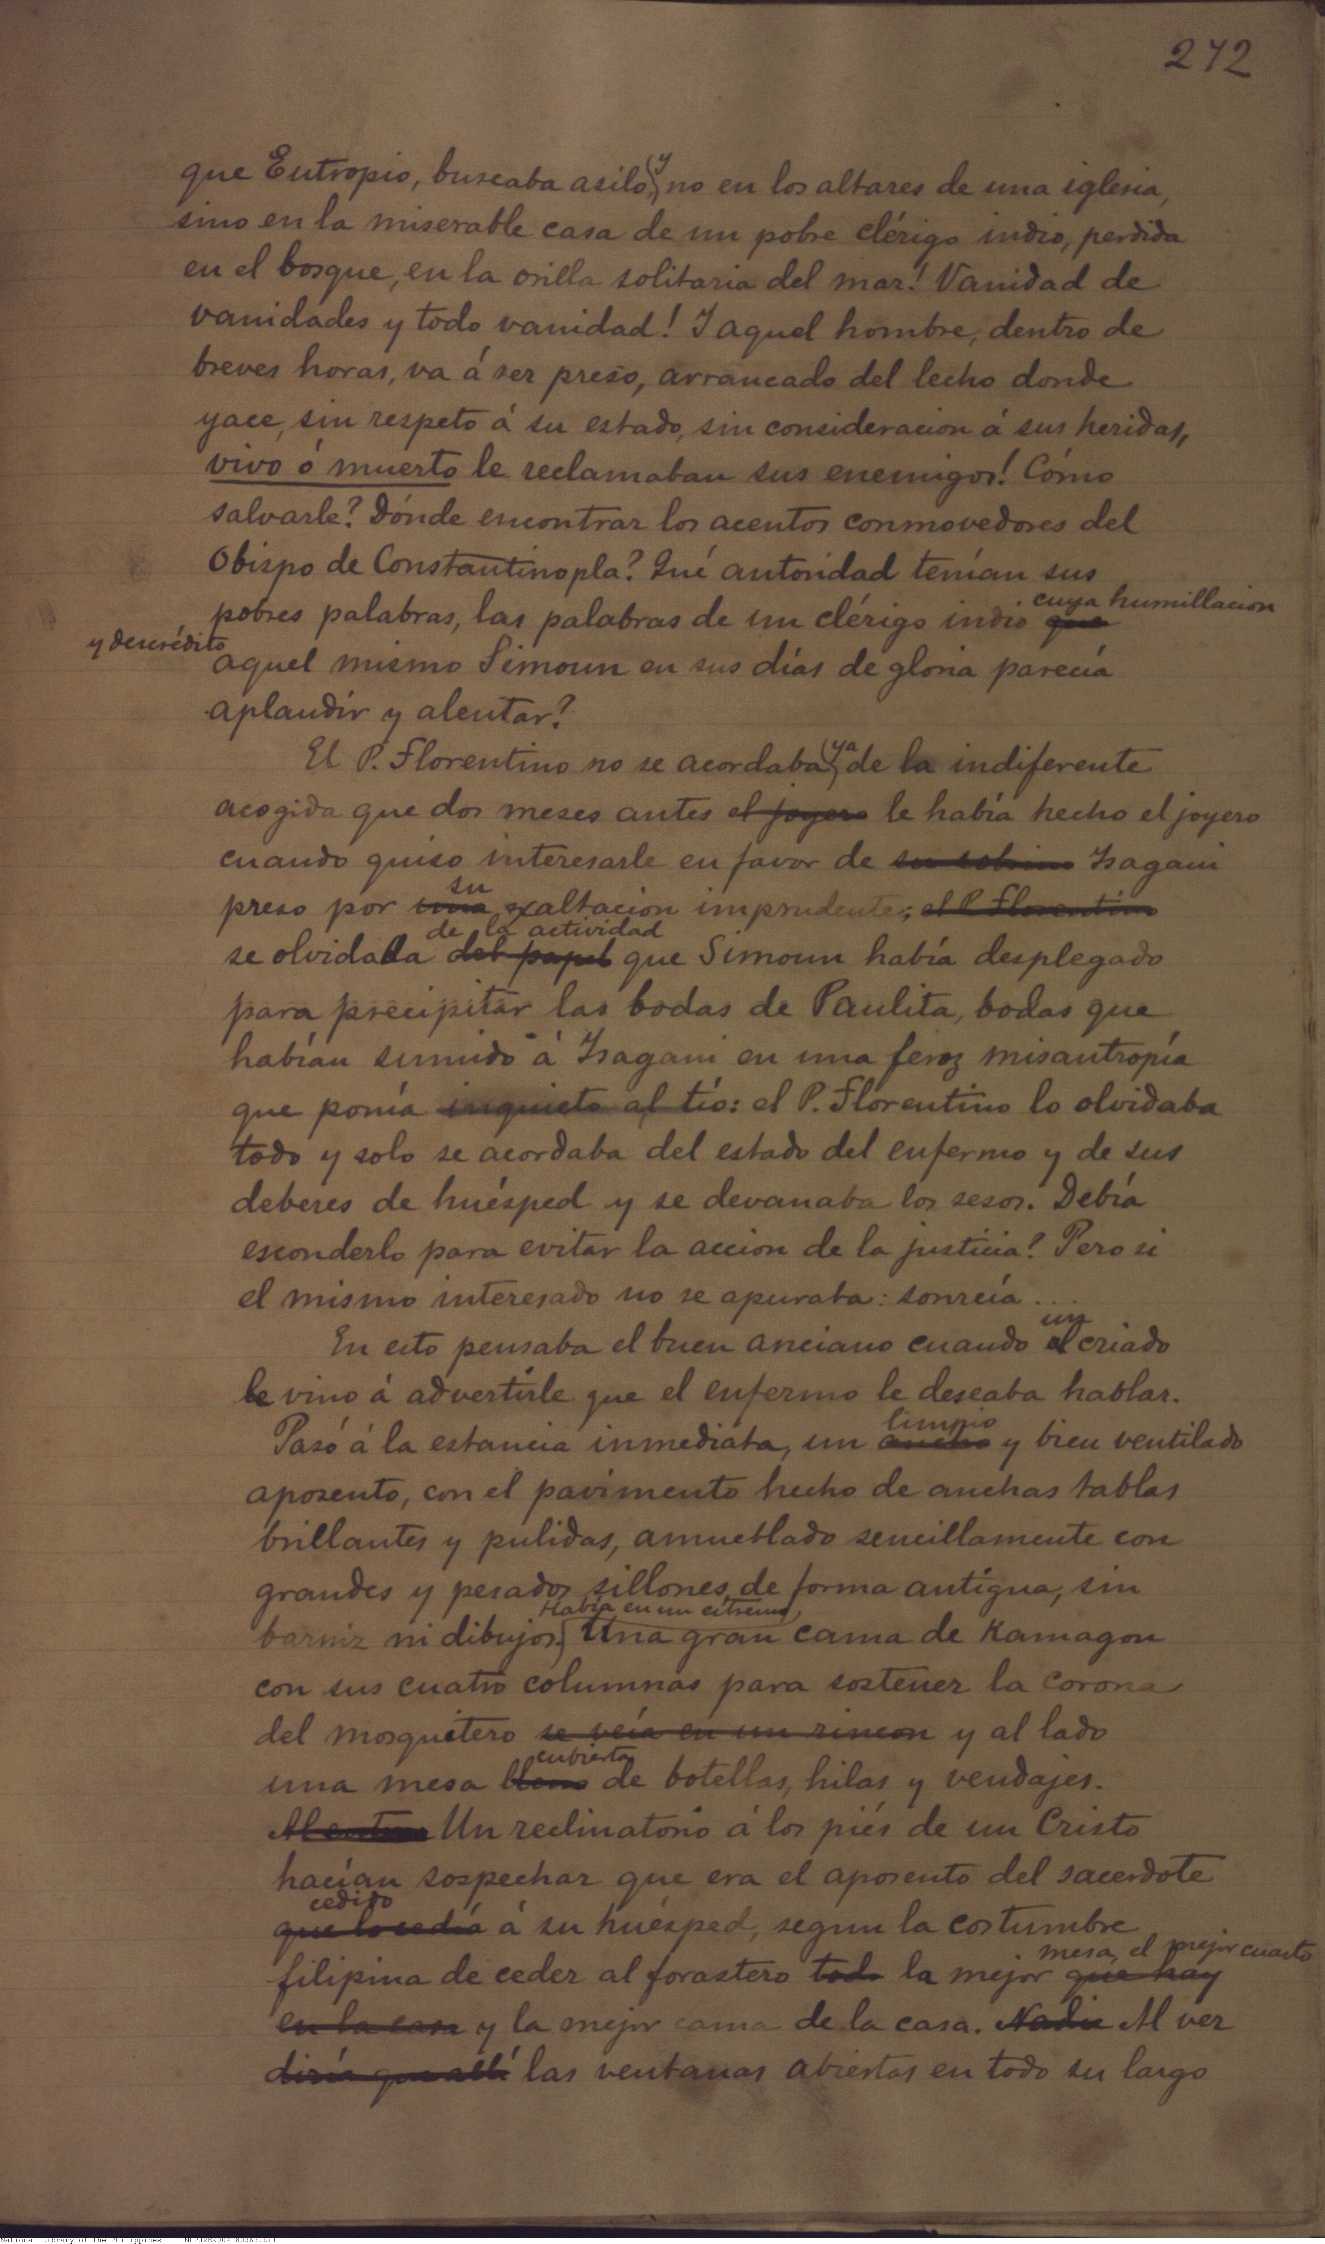 272
que Eutropio, buscaba asilo, y no en los altares de una iglesia,
sino en la miserable casa de un pobre clérigo indio, perdida
en el bosque, en la orilla solitaria del mar! Vanidad de
vanidades y todo vanidad! Y aquel hombre, dentro de
breves horas, va á ser preso, arrancado del lecho donde
yace, sin respeto á su estado, sin consideracion á sus heridas,
vivo ó muerto le reclamaban sus enemigos! Cómo
salvarle? Dónde encontrar los acentos conmovedores del
Obispo de Constantinopla? Qué autoridad tenían sus
pobres palabras, las palabras de un clérigo indio que cuya humillacion
y descrédito
aquel mismo Simoun en sus días de gloria parecía
aplaudir y alentar?
El P. Florentino no se acordaba ya de la indiferente
acogida que dos meses antes el joyero le había hecho el joyero
cuando quiso interesarle en favor de su sobrino Isagani
preso por una su exaltacion imprudente; el P. Florentino
se olvidaba del papel de la actividad que Simoun había desplegado
para precipitar las bodas de Paulita, bodas que
habían sumido á Isagani en una feroz misantropía
que ponía inquieto al tío: el P. Florentino lo olvidaba
todo y solo se acordaba del estado del enfermo y de sus
deberes de huésped y se devanaba los sesos. Debía
esconderlo para evitar la accion de la justicia? Pero si
el mismo interesado no se apuraba: sonreía ...
En esto pensaba el buen anciano cuando el un criado
le vino á advertirle que el enfermo le deseaba hablar.
Pasó á la estancia inmediata, un ancho limpio y bien ventilado
aposento, con el pavimento hecho de anchas tablas
brillantes y pulidas, amueblado sencillamente con
grandes y pesados sillones de forma antigua, sin
barniz ni dibujos. Había en un estremo, Una gran cama de Kamagon
con sus cuatro columnas para sostener la corona
del mosquitero se veía en un rincon y al lado
una mesa llena cubierta de botellas, hilas y vendajes.
Al entrar Un reclinatorio á los piés de un Cristo
hacían sospechar que era el aposento del sacerdote
que lo cedía cedido á su huésped, segun la costumbre
filipina de ceder al forastero todo la mejor que hay mesa, el mejor cuarto
en la casa y la mejor cama de la casa. Nadie Al ver
diría que allí las ventanas abiertas en todo su largo